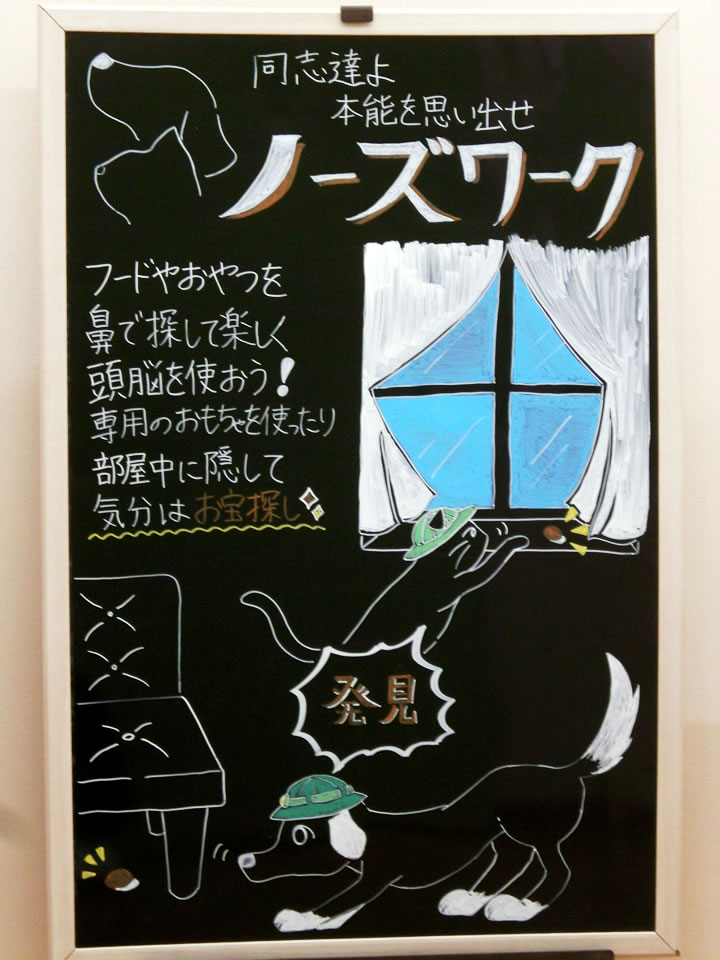 同志達よ
本能を思い出せ
ノーズワーク
フードやおやつを
鼻で探して楽しく
頭脳を使おう!
専用のおもちゃを使ったり
部屋中に隠して
気分はお宝探し
発見